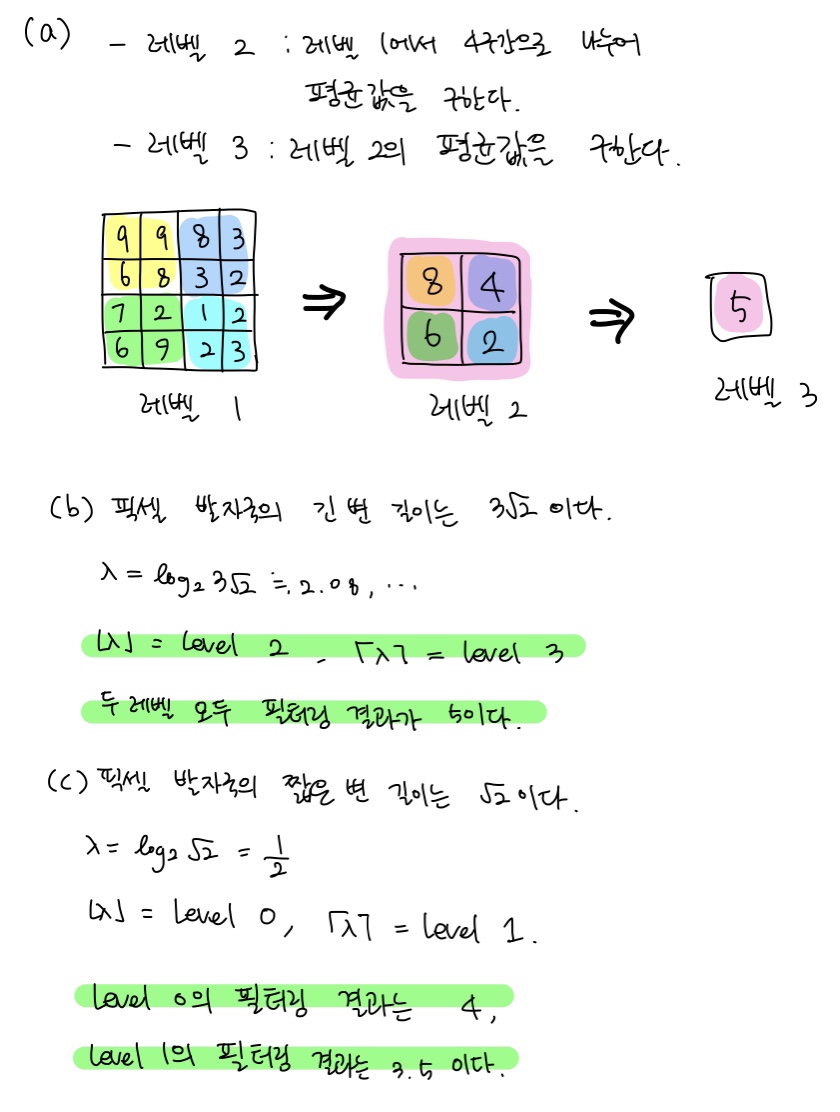 (a) - 레벨 2 : 레벨 1에서 4구간으로 나누어
평균값을 구한다.
- 레벨 3 : 레벨 2의 평균값을 구한다.
9 9 8 3
6 8 3 2
7 2 1 2
6 9 2 3
⇒
8 4
6 2
⇒
5
레벨 1
레벨 2
레벨 3
(b) 픽셀 발자국의 긴 변 길이는 3√2 이다.
λ = log₂ 3√2 ≒ 2.08, ⋯
⌊λ⌋ = level 2 , ⌈λ⌉ = level 3
두 레벨 모두 필터링 결과가 5이다.
(c) 픽셀 발자국의 짧은 변 길이는 √2 이다.
λ = log₂ √2 = 1/2
⌊λ⌋ = level 0, ⌈λ⌉ = level 1.
level 0의 필터링 결과는 4,
level 1의 필터링 결과는 3.5 이다.